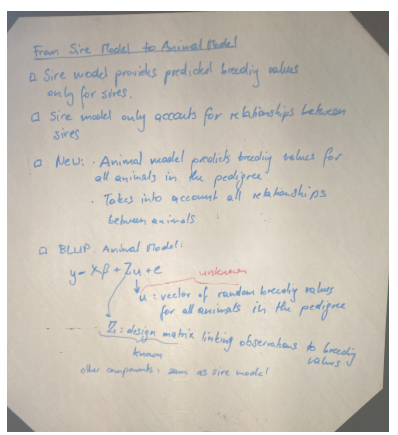 From Sire Model to Animal Model
□ Sire model provides predicted breeding values
only for sires.
□ Sire model only accounts for relationships between
sires
□ New: · Animal model predicts breeding values for
all animals in the pedigree
· Takes into account all relationships
between animals
□ BLUP Animal Model:
y = Xβ + Zu + e
unknown
u: vector of random breeding values
for all animals in the pedigree
Z: design matrix linking observations to breeding
values
known
other components: same as sire model